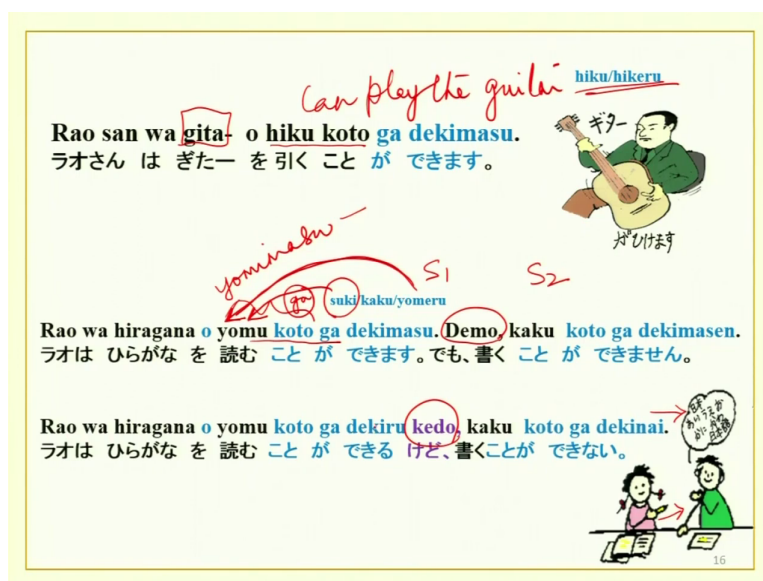 Can play the guitar
hiku/hikeru
Rao san wa gita- o hiku koto ga dekimasu.
ラオさん は ぎたー を 引く こと が できます。
ギター
がひけます
yomimasu —
S1 S2
ga suki/kaku/yomeru
Rao wa hiragana o yomu koto ga dekimasu. Demo, kaku koto ga dekimasen.
ラオは ひらがな を 読む こと が できます。でも、書く こと が できません。
Rao wa hiragana o yomu koto ga dekiru kedo, kaku koto ga dekinai.
ラオは ひらがな を 読む こと が できる けど、書くことが できない。
16